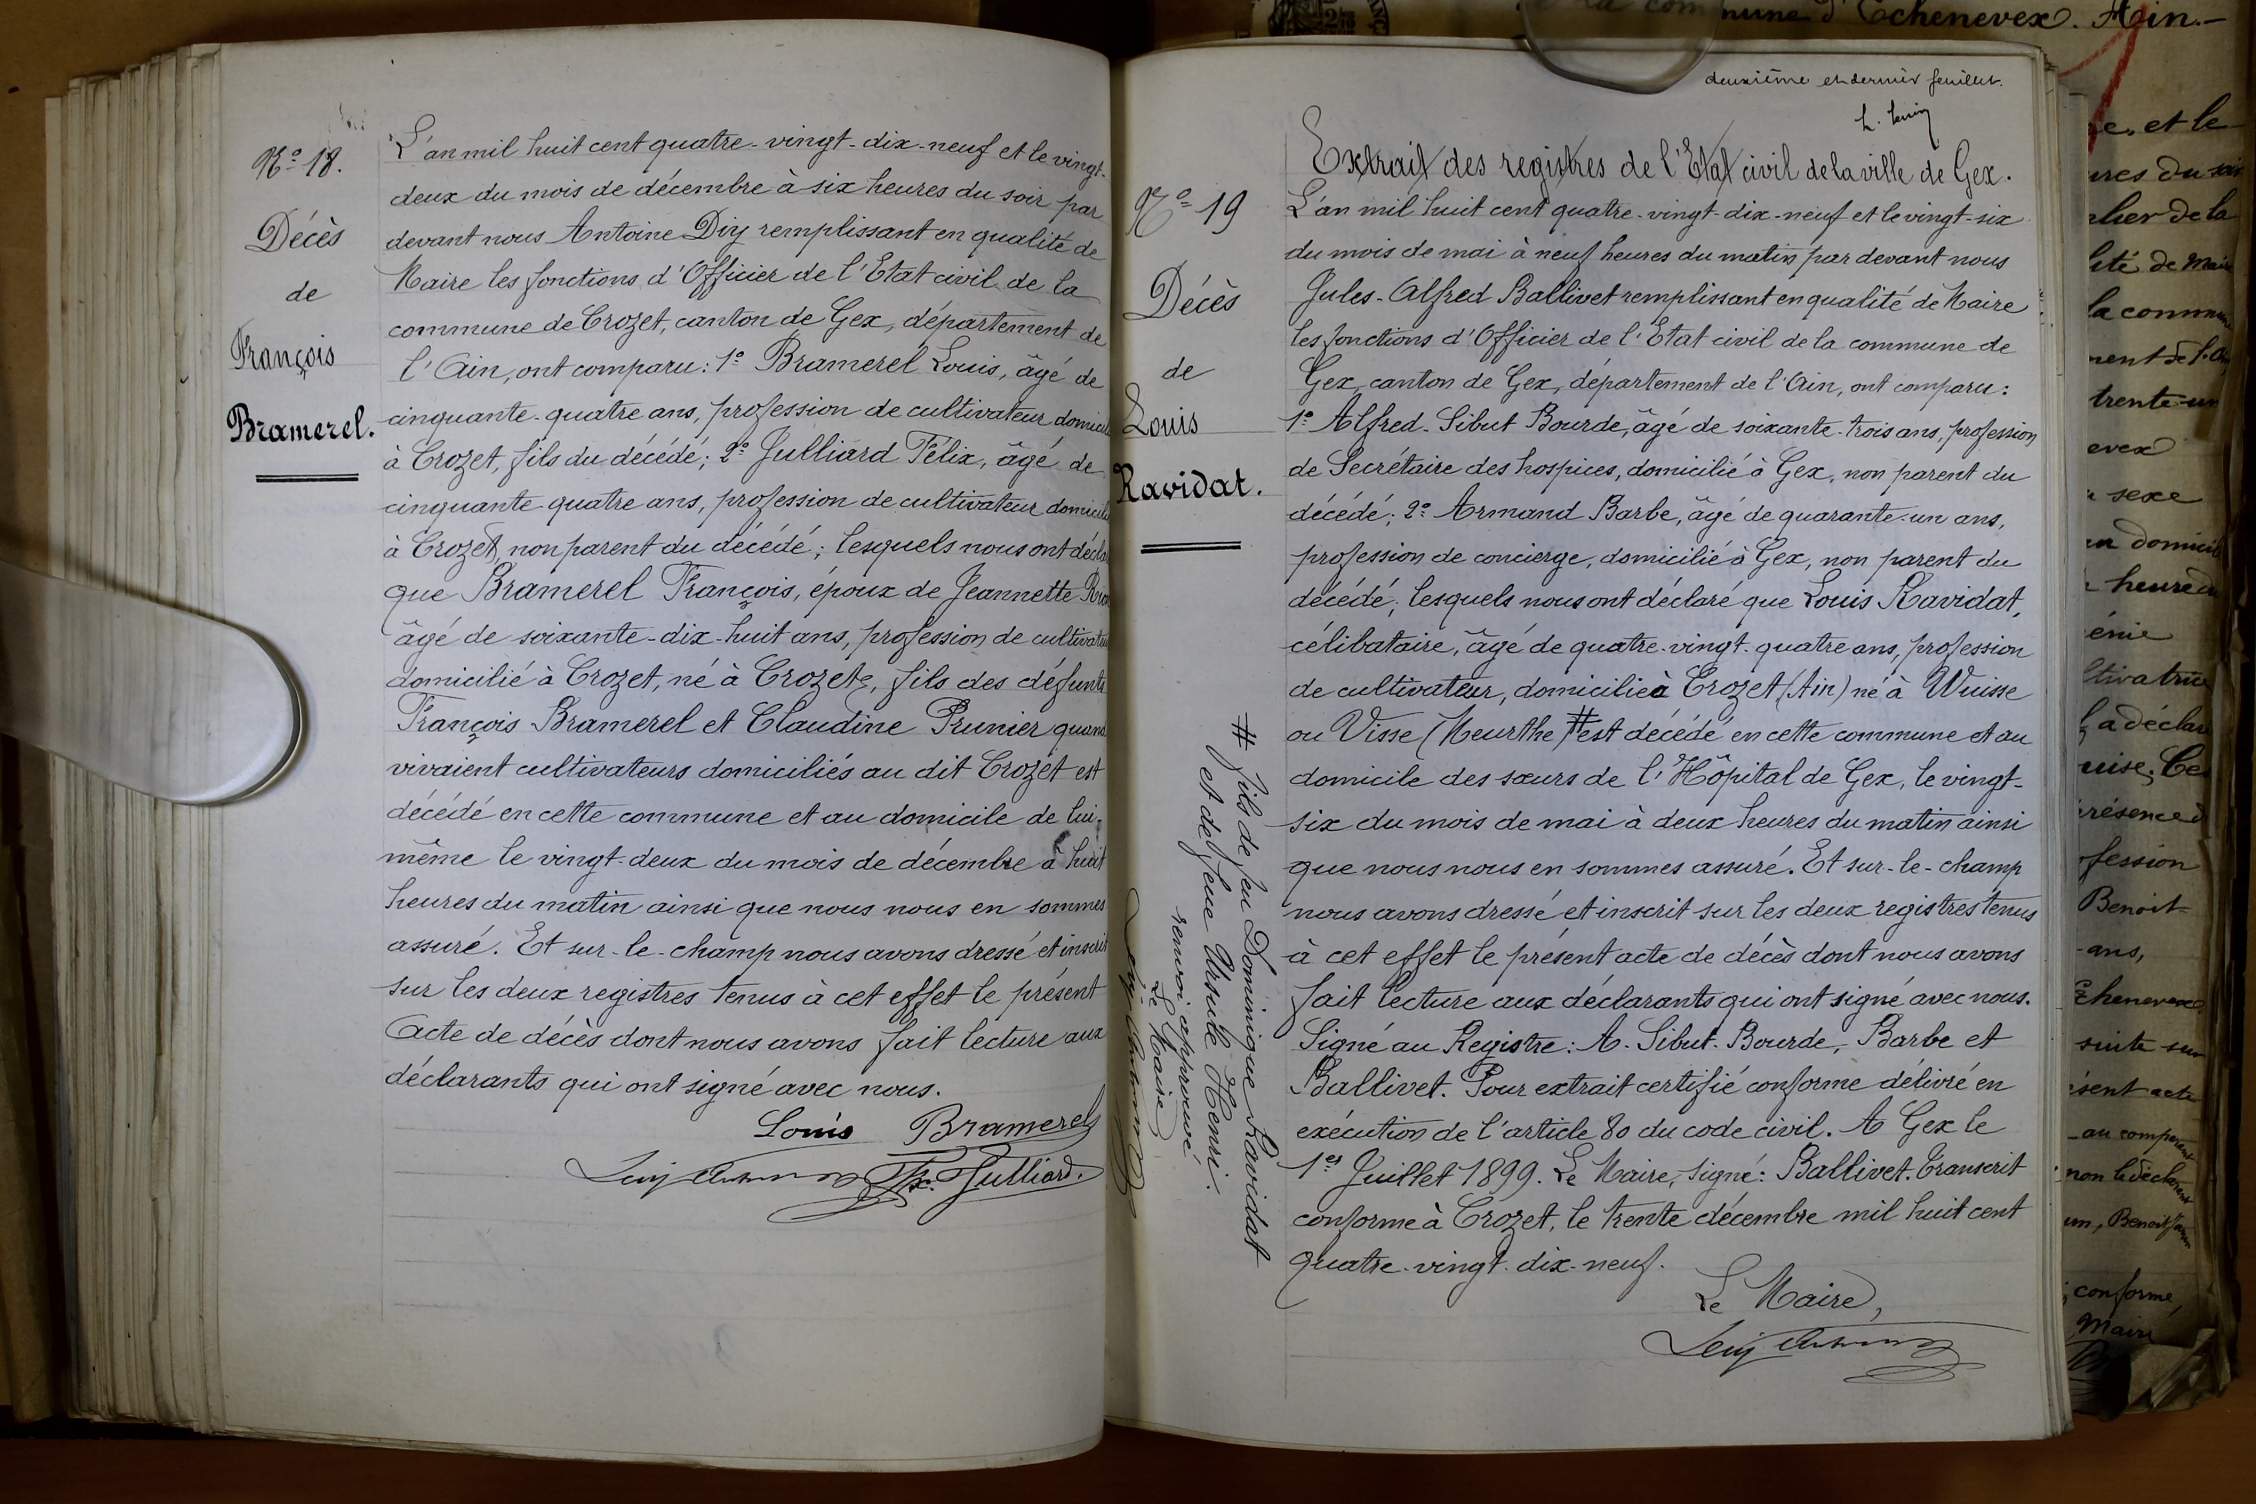 N.o 18.
Décès
de
François
Bramerel.
L'an mil huit cent quatre-vingt-dix-neuf et le vingt-
deux du mois de décembre à six heures du soir par
devant nous Antoine Diy remplissant en qualité de
Maire les fonctions d'Officier de l'Etat civil de la
commune de Crozet, canton de Gex, département de
l'Ain, ont comparu: 1.o Bramerel Louis, âgé de
cinquante-quatre ans, profession de cultivateur
à Crozet, fils du décédé; 2.o Julliard Félix, âgé de
cinquante-quatre ans, profession de cultivateur
à Crozet, non parent du décédé; lesquels nous ont
que Bramerel François, époux de Jeannette
âgé de soixante-dix-huit ans, profession de
domicilié à Crozet, né à Crozet, fils des défunts
François Bramerel et Claudine Prunier quand
vivaient cultivateurs domiciliés au dit Crozet est
décédé en cette commune et au domicile de lui-
même le vingt-deux du mois de décembre à huit
heures du matin ainsi que nous nous en sommes
assuré. Et sur-le-champ nous avons dressé et inscrit
sur les deux registres tenus à cet effet le présent
Acte de décès dont nous avons fait lecture aux
déclarants qui ont signé avec nous.
Louis Bramerel
Fx. Julliard.
deuxième et dernier feuillet.
Extrait des registres de l'Etat civil de la ville de Gex.
N.o 19
Décès
de
Louis
Ravidat.
L'an mil huit cent quatre-vingt-dix-neuf et le vingt-six
du mois de mai à neuf heures du matin par devant nous
Jules-Alfred Ballivet remplissant en qualité de Maire
les fonctions d'Officier de l'Etat civil de la commune de
Gex, canton de Gex, département de l'Ain, ont comparu:
1.o Alfred-Sibut Bourde, âgé de soixante-trois ans, profession
de Secrétaire des hospices, domicilié à Gex, non parent du
décédé; 2.o Armand Barbe, âgé de quarante-un ans,
profession de concierge, domicilié à Gex, non parent du
décédé; lesquels nous ont déclaré que Louis Ravidat,
célibataire, âgé de quatre-vingt-quatre ans, profession
de cultivateur, domicilié à Crozet (Ain) né à Wuisse
ou Visse (Meurthe) # est décédé en cette commune et au
domicile des sœurs de l'Hôpital de Gex, le vingt-
six du mois de mai à deux heures du matin ainsi
que nous nous en sommes assuré. Et sur-le-champ
nous avons dressé et inscrit sur les deux registres tenus
à cet effet le présent acte de décès dont nous avons
fait lecture aux déclarants qui ont signé avec nous.
Signé au Registre: A. Sibut-Bourde, Barbe et
Ballivet. Pour extrait certifié conforme délivré en
exécution de l'article 80 du code civil. A Gex le
1er Juillet 1899. Le Maire, signé: Ballivet. Transcrit
conforme à Crozet, le trente décembre mil huit cent
quatre-vingt-dix-neuf.
Le Maire,
# fils de feu Dominique Ravidat
et de feue Ursule Henri.
renvoi approuvé.
Le Maire
commune d'Echenevex. Ain.-
e, et le
de la
de Maire
la commune
trente-un
evex
sexe
heure
a déclaré
fession
Benoit
ans,
Echenevex
conforme,
Maire